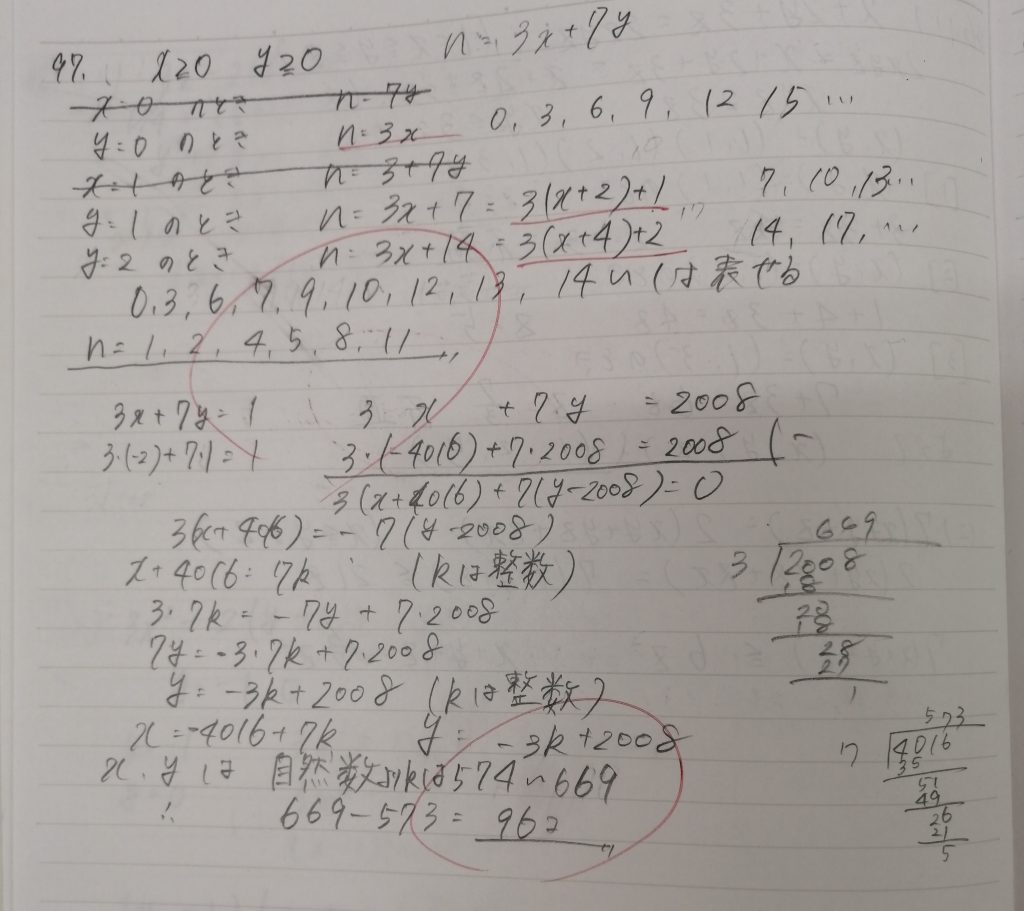 97. x≧0 y≧0 n=3x+7y
x=0 のとき n=7y
y=0 のとき n=3x 0, 3, 6, 9, 12 15 …
x=1 のとき n=3+7y
y=1 のとき n=3x+7=3(x+2)+1 7, 10, 13…
y=2 のとき n=3x+14=3(x+4)+2 14, 17, …
0, 3, 6, 7, 9, 10, 12, 13, 14 は表せる
n=1, 2, 4, 5, 8, 11
3x+7y=1 3 x +7・y =2008
3・(-2)+7・1=1 3・(-4016)+7・2008=2008 (-
3(x+4016)+7(y-2008)=0
3(x+4016)=-7(y-2008)
x+4016=7k (kは整数)
3・7k=-7y+7・2008
7y=-3・7k+7・2008
y=-3k+2008 (kは整数)
x=-4016+7k y=-3k+2008
x, yは 自然数よりkは574~669
∴ 669-573=96コ
669
3 2008
18
20
18
28
27
1
573
7 4016
35
51
49
26
21
5